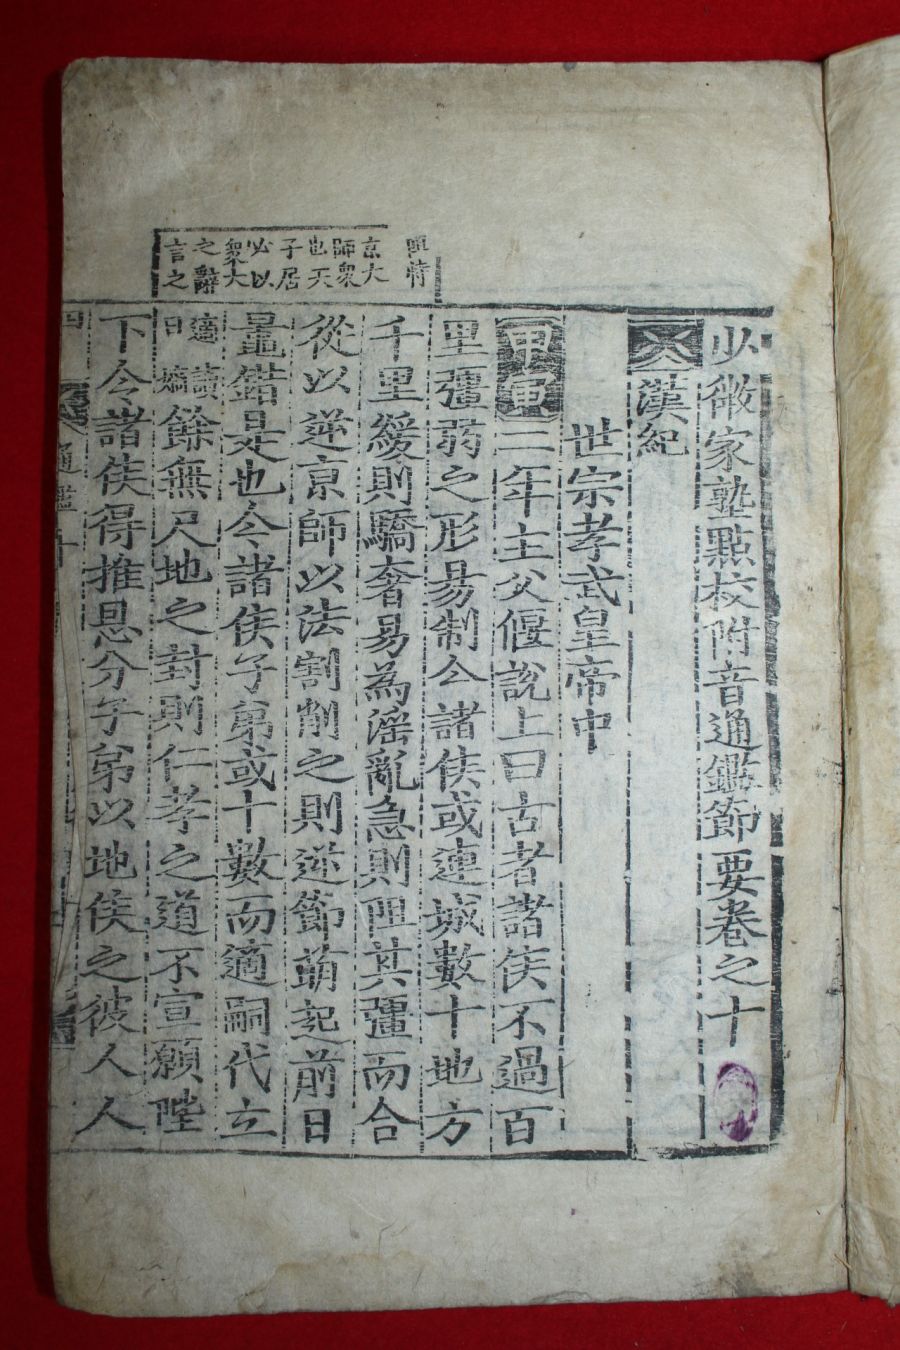 京大
師衆
也天
子居
必以
衆大
之辭
言之
少微家塾點校附音通鑑節要卷之十
漢紀
世宗孝武皇帝中
甲寅二年主父偃說上曰古者諸侯不過百
里彊弱之形易制今諸侯或連城數十地方
千里緩則驕奢易為淫亂急則阻其彊而合
從以逆京師以法割削之則逆節萌起前日
鼂錯是也今諸侯子弟或十數而適嗣代立
適讀曰嫡餘無尺地之封則仁孝之道不宣願陛
下令諸侯得推恩分子弟以地侯之彼人人
通鑑十